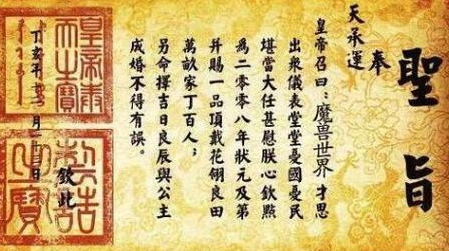 聖旨
奉
天承運
皇帝召曰：魔兽世界才思
出衆儀表堂堂憂國憂民
堪當大任甚慰朕心欽點
為二零零八年狀元及第
并賜一品頂戴花翎良田
萬畝家丁百人；
另命擇吉日良辰與公主
成婚不得有誤。
欽此
丁亥年 月 日
皇帝奉天之寶